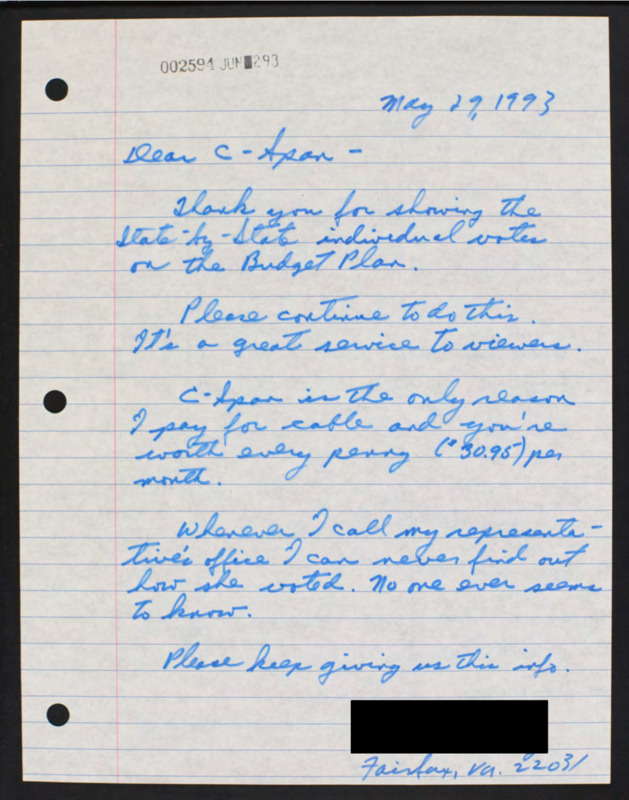 002594 JUN 293
May 29, 1993
Dear C-Span -
Thank you for showing the
State-by-State individual votes
on the Budget Plan.
Please continue to do this.
It's a great service to viewers.
C-Span is the only reason
I pay for cable and you're
worth every penny ($30.95) per
month.
Whenever I call my representa-
tive's office I can never find out
how she voted. No one ever seems
to know.
Please keep giving us this info.
Fairfax, Va. 22031